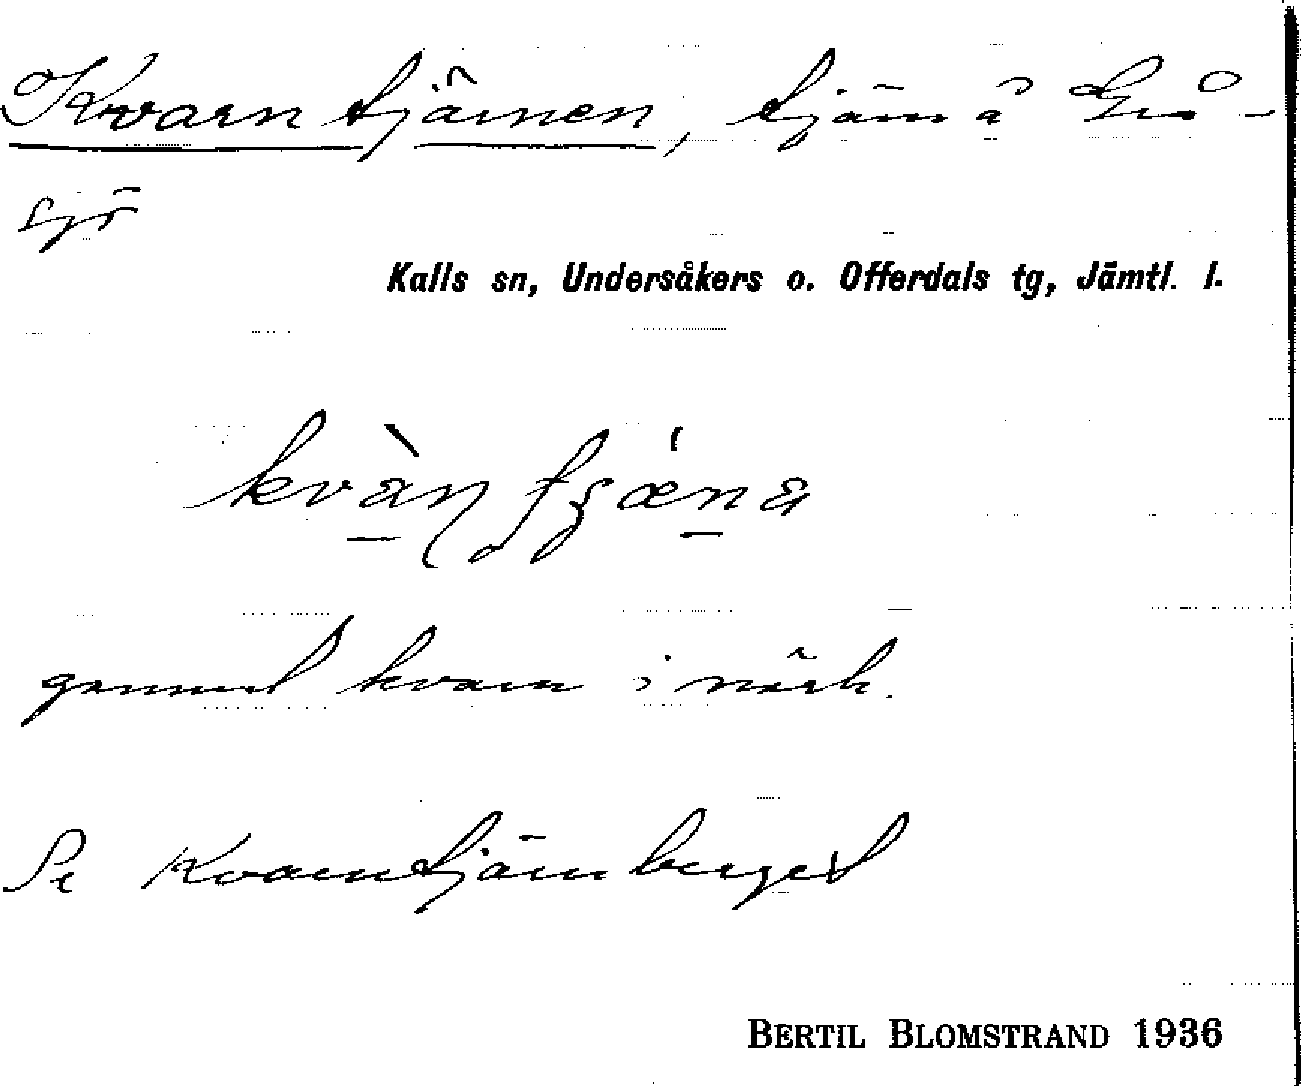 Kvarntjärnen, tjärn å Grå-
sjö
Kalls sn, Undersåkers o. Offerdals tg, Jämtl. l.
gammal kvarn i närh.
Se Kvarntjärnberget
BERTIL BLOMSTRAND 1936